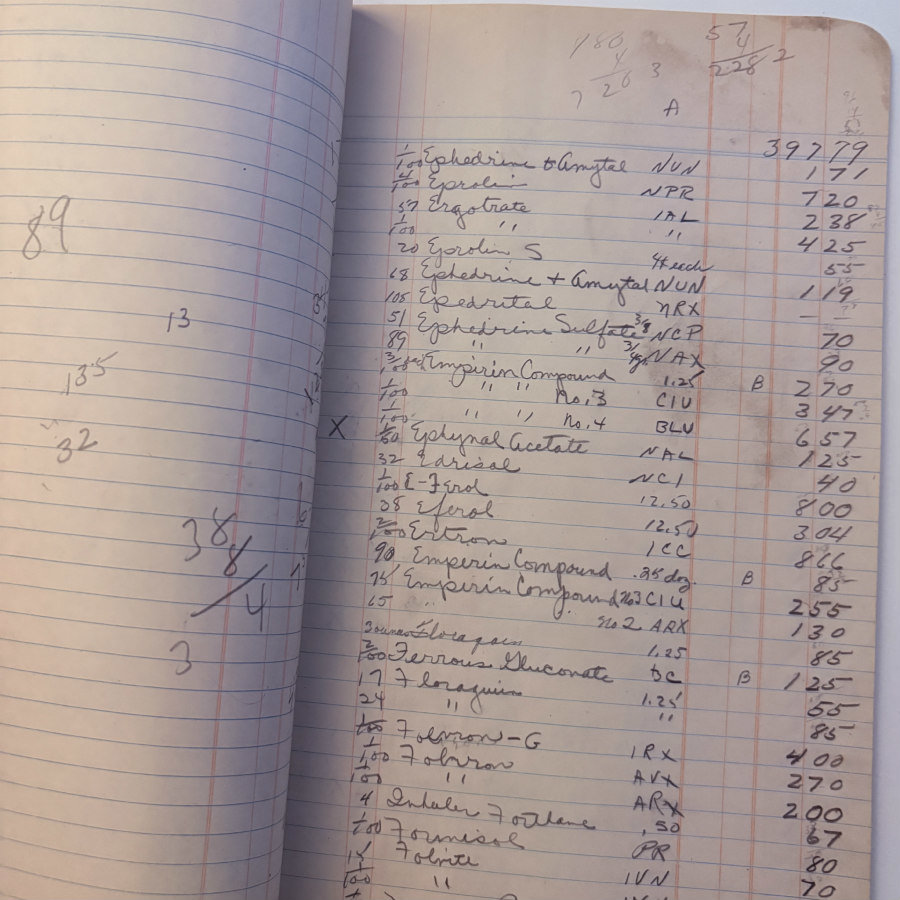 89
13
135
32
38
8/4
3
480
4
20 3
57
4
228 2
A
39779
1/100 Ephedrine & Amytal NUN 171
4/100 Eprolin NPR 720
57 Ergotrate 1AL 238
1/100 " " 425
20 Eprolin S 4¢ each 55
68 Ephedrine + Amytal NUN 119
105 Epedrital NRX — —
51 Ephedrine Sulfate 3/8 NCP 70
89 " " 3/4 gr. NAX 90
3/100 Empirin Compound 1.25 B 270
1/100 " " No. 3 CIU 347
1/100 " " No. 4 BLU 657
X Ephynal Acetate NAL 125
32 Edrisal NCI 40
1/100 E-Ferol 12.50 800
38 Eferol 12.50 304
2/100 Ertron 1CC 866
90 Emperin Compound .35 doz. B 85
75 Emperin Compound No3 CIU 255
65 " No 2 ARX 130
3 ounces Floraquin 1.25 85
2/100 Ferrous Gluconate DC B 125
17 Floraquin 1.25 55
24 " " 85
1/100 Folvron-G 1RX 400
1/100 Folvron AVX 270
1/100 " ARX 200
4 Inhaler Forthane .50 67
1/100 Formisol PR 80
15 Folvite 1VN 70
100 "